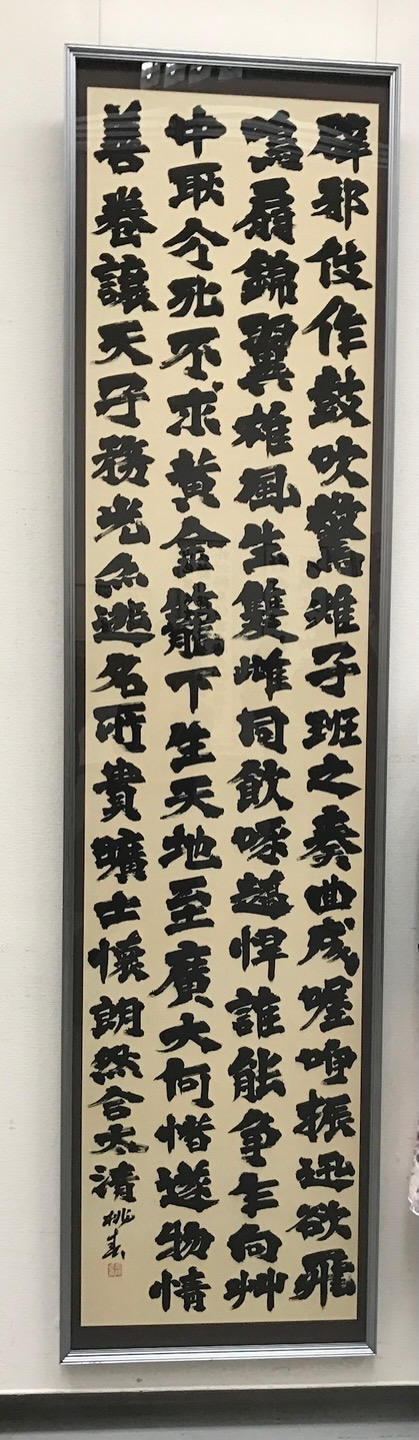 辟邪伎作鼓吹驚雉子班之奏曲成喔咿振迅欲飛
鳴扇錦翼雄風生雙雌同飲啄趫悍誰能爭乍向艸
中耿介死不求黃金籠下生天地至廣大何惜遂物情
善卷讓天子務光亦逃名所貴曠士懷朗然合太清 桃春